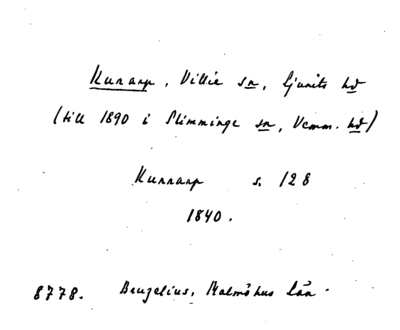 Kunarp, Villie sn, Ljunits hd
(till 1890 i Slimminge sn, Vemm. hd)
Kunnarp s. 128
1840.
8778. Bruzelius, Malmöhus län.